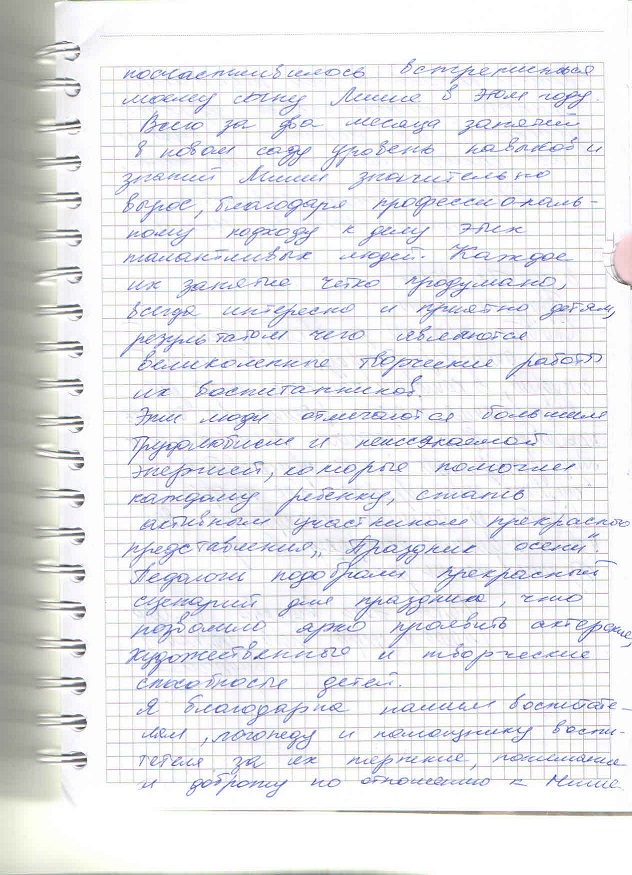 посчастливилось встретиться
моему сыну Мише в этом году.
Всего за два месяца занятий
в новом саду уровень навыков и
знаний Миши значительно
вырос, благодаря профессиональ-
ному подходу к делу этих
талантливых людей. Каждое
их занятие четко продумано,
всегда интересно и приятно детям,
результатом чего являются
великолепные творческие работы
их воспитанников.
Эти люди отличаются большим
трудолюбием и неиссякаемой
энергией, которые помогли
каждому ребенку, стать
активным участником прекрасного
представления „Праздник осени".
Педагоги подобрали прекрасный
сценарий для праздника, что
позволило ярко проявить актерские,
художественные и творческие
способности детей.
Я благодарна нашим воспитате-
лям, логопеду и помощнику воспи-
тателя за их терпение, понимание
и доброту по отношению к Мише